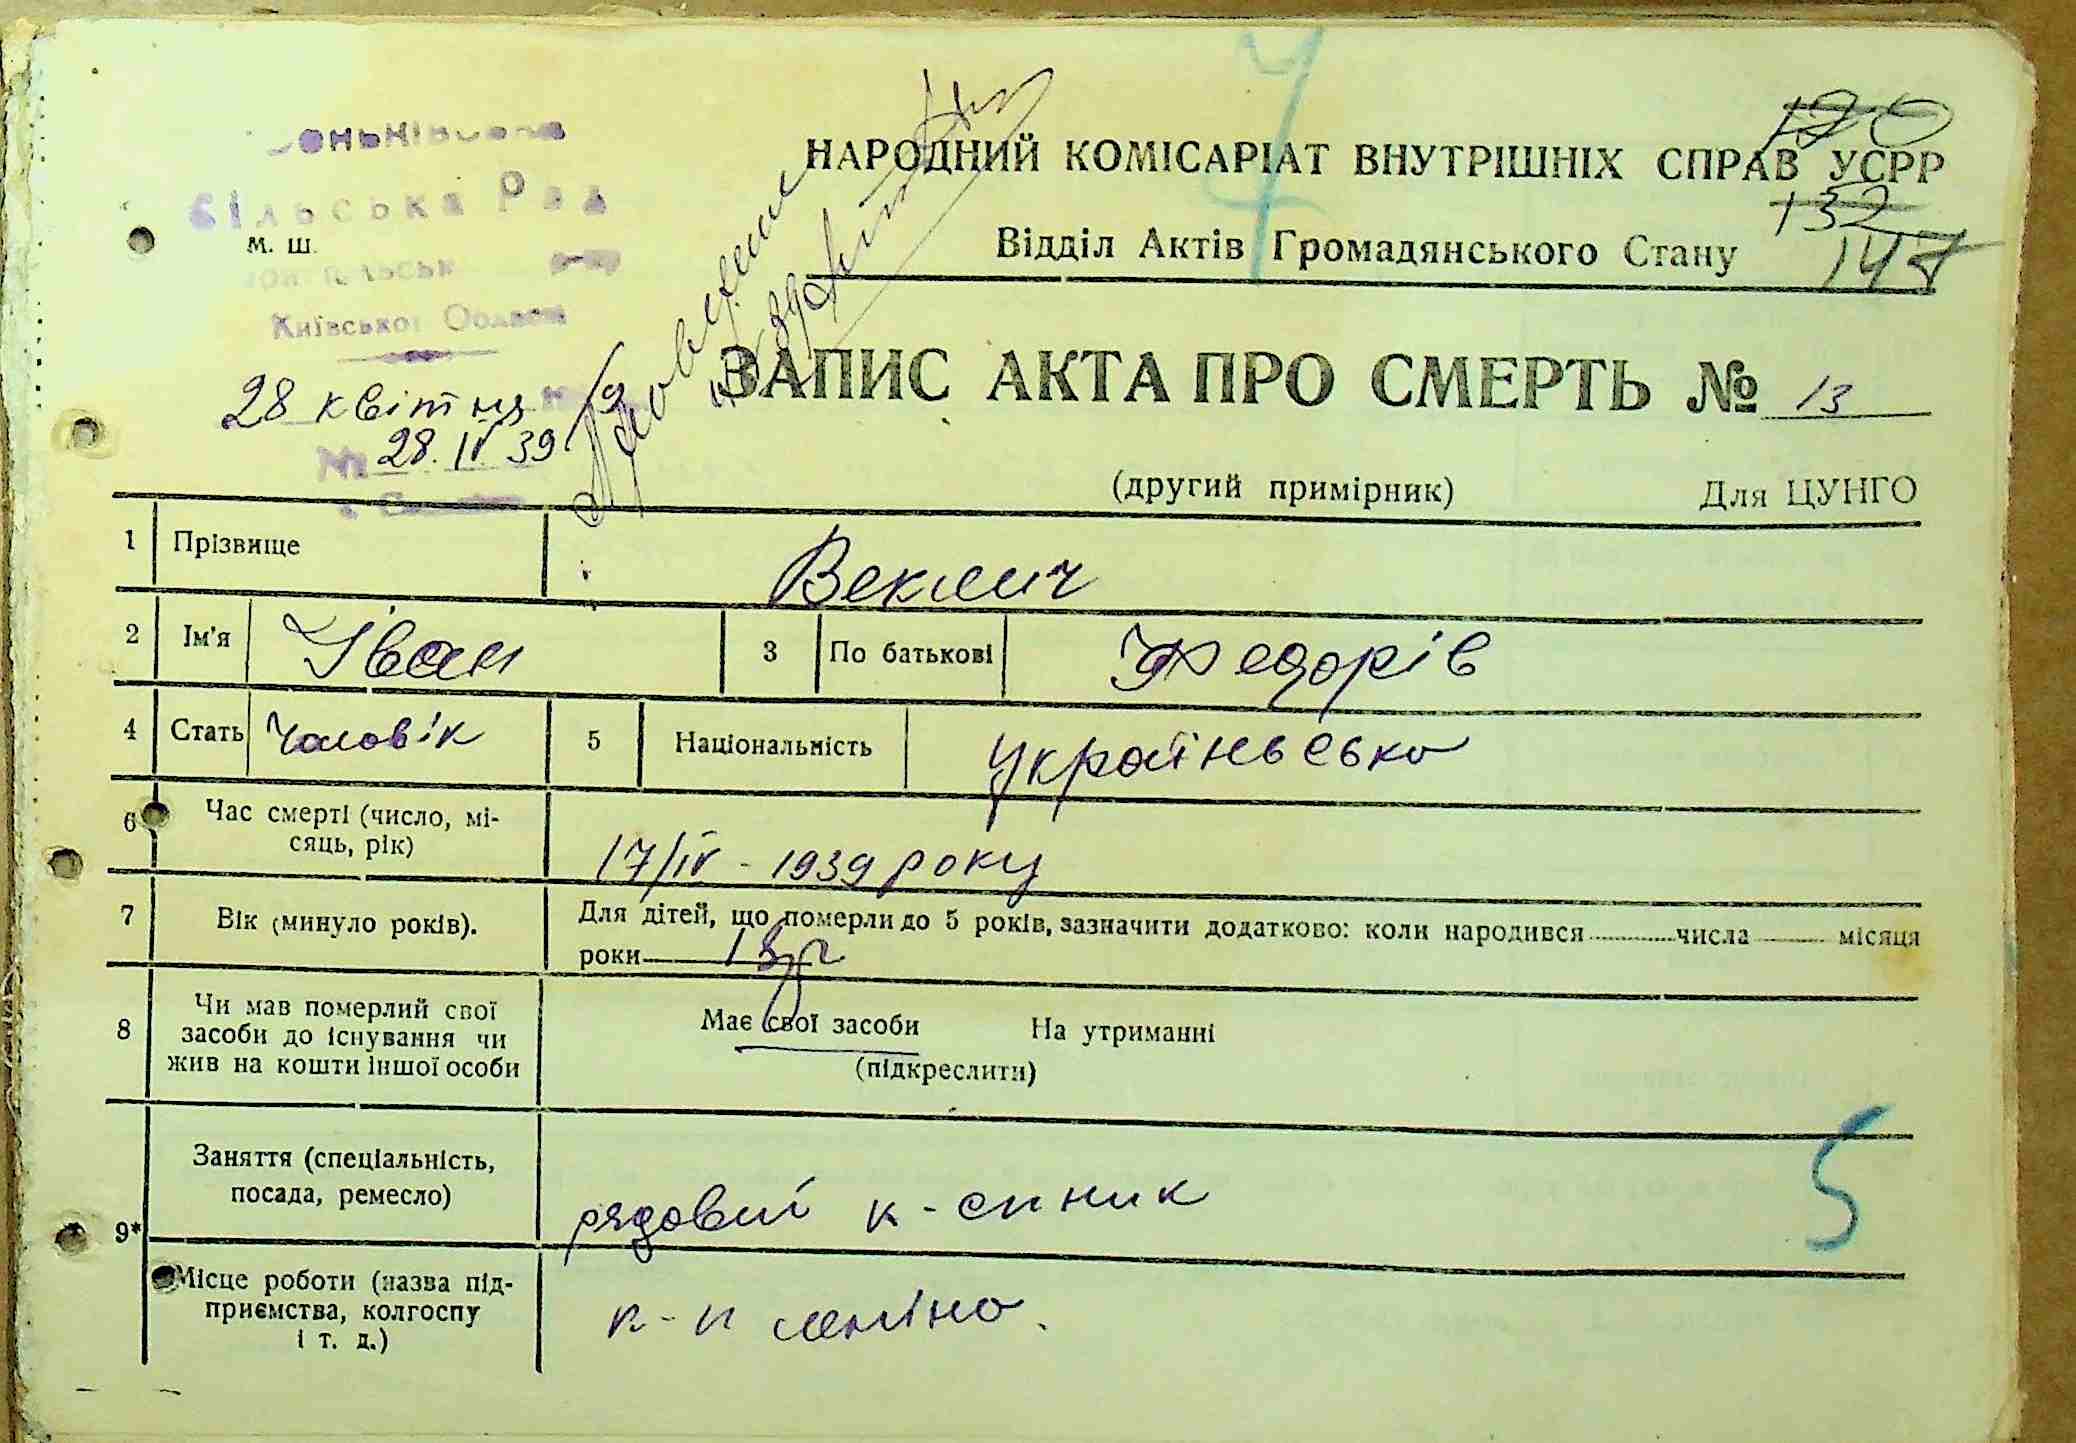 7
120
НАРОДНИЙ КОМІСАРІАТ ВНУТРІШНІХ СПРАВ УСРР
132
Відділ Актів Громадянського Стану
147
сільська Рад
М. Ш.
Київської
28 квітня
28.IV 39
ЗАПИС АКТА ПРО СМЕРТЬ № 13
(другий примірник) Для ЦУНГО
1 Прізвище Веклич
2 Ім'я Іван 3 По батькові Федорів
4 Стать Чоловік 5 Національність Україньська
6 Час смерті (число, мі-
сяць, рік) 17/IV - 1939 року
7 Вік (минуло років). Для дітей, що померли до 5 років, зазначити додатково: коли народився числа місяця
роки
8 Чи мав померлий свої
засоби до існування чи
жив на кошти іншої особи
Має свої засоби На утриманні
(підкреслити)
5
Заняття (спеціальність,
посада, ремесло) рядовий к-спник
9*
Місце роботи (назва під-
приємства, колгоспу
і т. д.) к-п леніна.